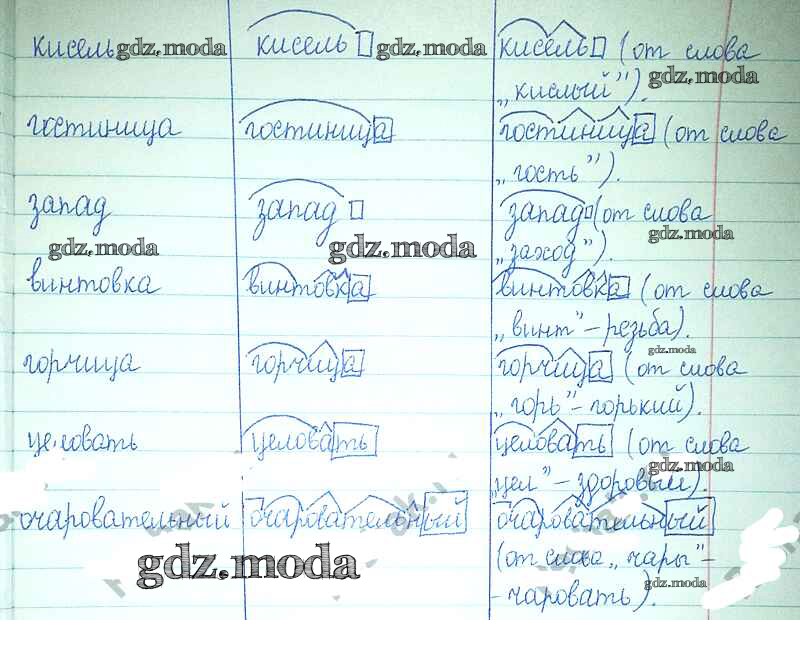 кисель gdz.moda кисель gdz.moda кисель (от слова
„кислый"). gdz.moda
гостиница гостиница гостиница (от слова
„гость").
запад запад запад (от слова
gdz.moda gdz.moda „заход"). gdz.moda
винтовка винтовка винтовка (от слова
„винт" - резьба).
gdz.moda
горчица горчица горчица (от слова
„горь" - горький).
целовать целовать целовать (от слова
„цел" - здоровый). gdz.moda
очаровательный очаровательный очаровательный
gdz.moda (от слова „чары" -
- чаровать). gdz.moda